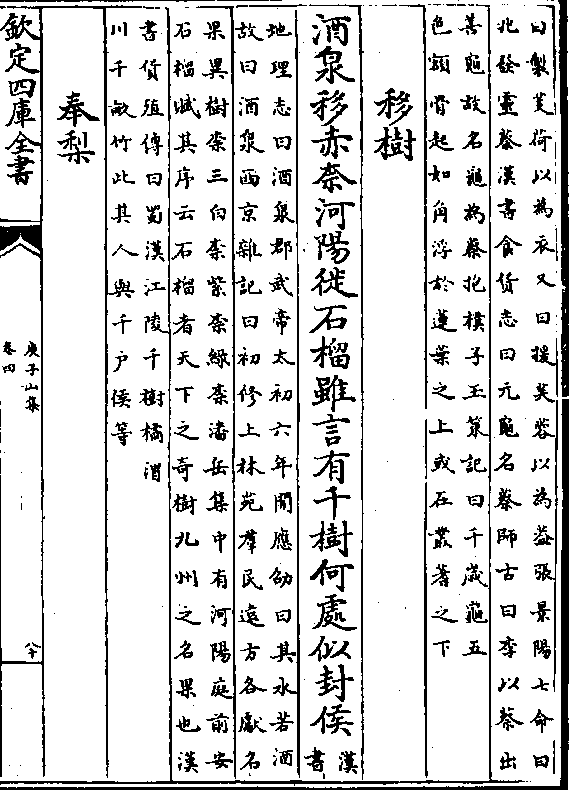 曰製芰荷以為衣又曰援芙蓉以為益張景陽七命曰
北發靈蔡漢書食貨志曰元龜名蔡師古曰李以蔡出
善龜故名龜為蔡抱樸子玉策記曰千歳龜五
色額骨起如角浮於蓮葉之上或在叢蓍之下
移樹
酒泉移赤柰河陽徙石榴雖言有千樹何處似封侯漢
書
地理志曰酒泉郡武帝太初六年開應劭曰其水若酒
故曰酒泉西京雜記曰初修上林苑羣民遠方各獻名
果異樹柰三白柰紫柰緑柰潘岳集中有河陽庭前安
石榴賦其序云石榴者天下之奇樹九州之名果也漢
書貨殖傳曰蜀漢江陵千樹橘渭
川千畝竹此其人與千户侯等
奉梨
欽定四庫全書
庾子山集
卷四
六十